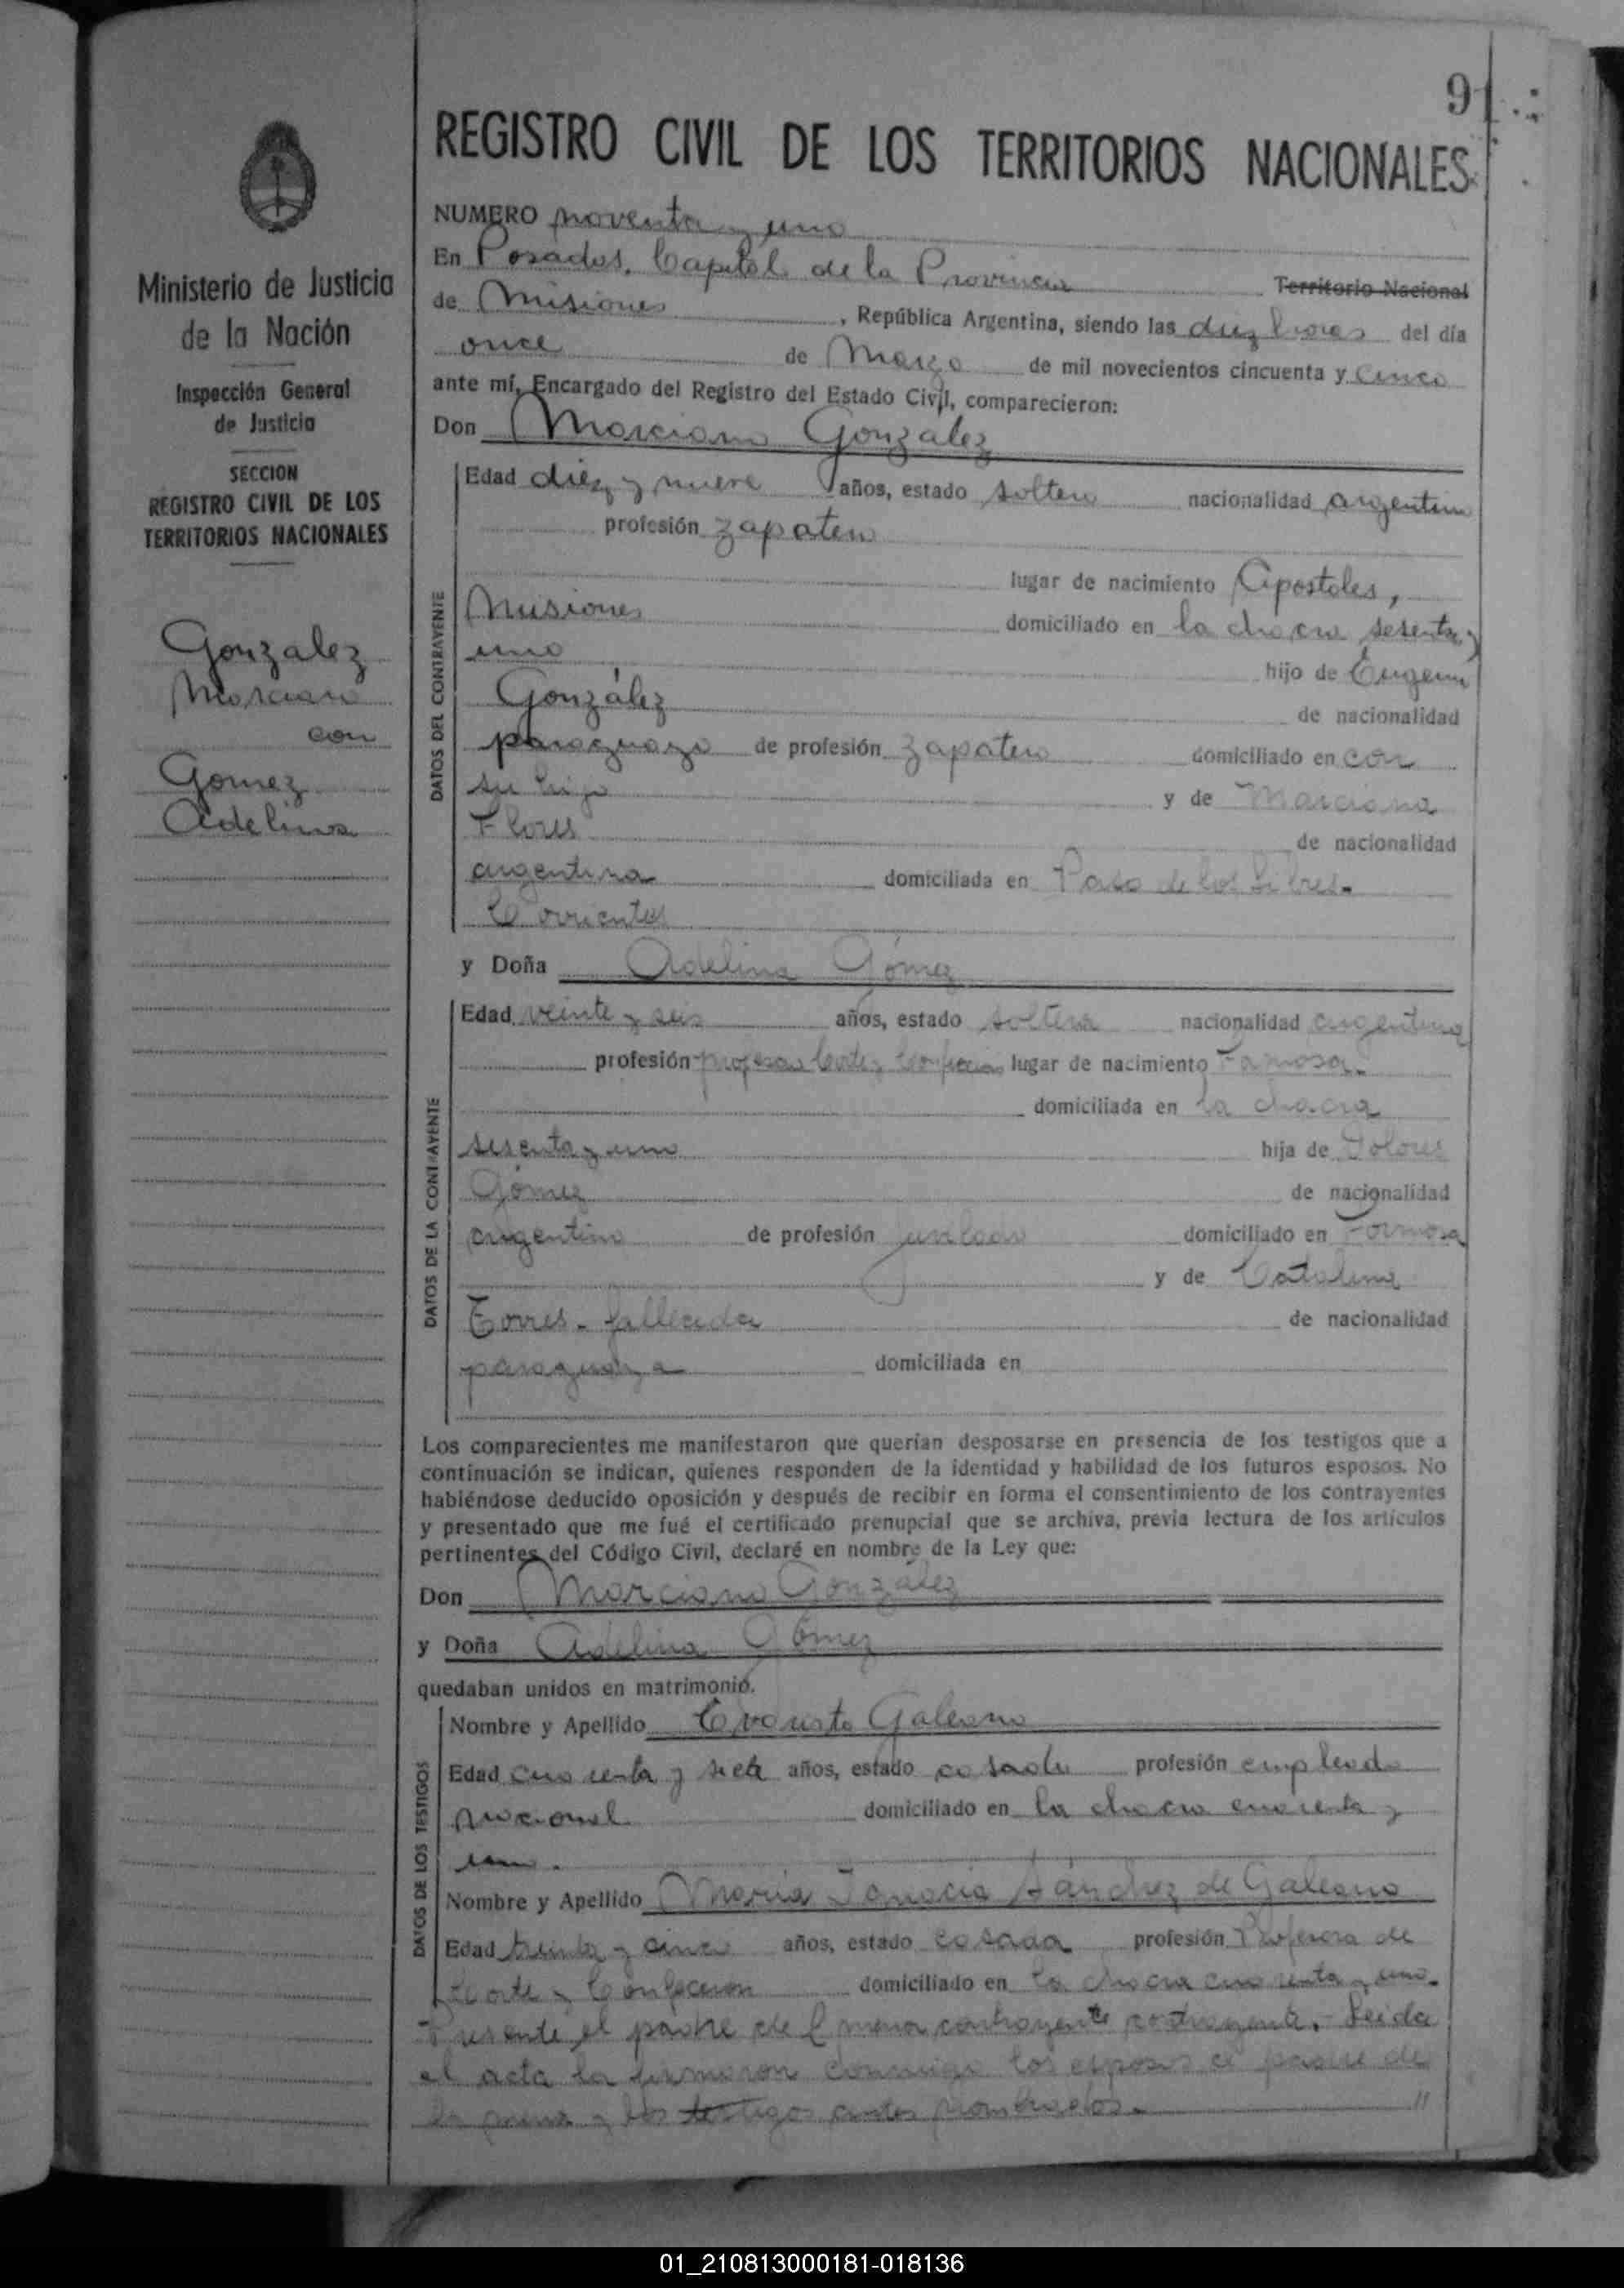 91
REGISTRO CIVIL DE LOS TERRITORIOS NACIONALES
Ministerio de Justicia
de la Nación
Inspección General
de Justicia
SECCION
REGISTRO CIVIL DE LOS
TERRITORIOS NACIONALES
Gonzalez
Marciano
con
Gomez
Adelina
NUMERO noventa y uno
En Posadas, Capital de la Provincia Territorio Nacional
de Misiones, República Argentina, siendo las diez horas del día
once de Marzo de mil novecientos cincuenta y cinco
ante mí, Encargado del Registro del Estado Civil, comparecieron:
Don Marciano Gonzalez
DATOS DEL CONTRAYENTE
Edad diez y nueve años, estado soltero nacionalidad argentino
profesión zapatero
lugar de nacimiento Apostoles,
Misiones domiciliado en la chacra sesenta y
uno hijo de Eugenio
González de nacionalidad
paraguayo de profesión zapatero domiciliado en con
su hijo y de Marciana
Flores de nacionalidad
argentina domiciliada en Paso de los Libres-
Corrientes
y Doña Adelina Gómez
DATOS DE LA CONTRAYENTE
Edad veinte y seis años, estado soltera nacionalidad argentina
profesión profesora Corte y Confección lugar de nacimiento Formosa-
domiciliada en la chacra
sesenta y uno hija de Dolores
Gómez de nacionalidad
argentino de profesión jubilado domiciliado en Formosa
y de Catalina
Torres - fallecida de nacionalidad
paraguaya domiciliada en
Los comparecientes me manifestaron que querían desposarse en presencia de los testigos que a
continuación se indican, quienes responden de la identidad y habilidad de los futuros esposos. No
habiéndose deducido oposición y después de recibir en forma el consentimiento de los contrayentes
y presentado que me fué el certificado prenupcial que se archiva, previa lectura de los artículos
pertinentes del Código Civil, declaré en nombre de la Ley que:
Don Marciano González
y Doña Adelina Gómez
quedaban unidos en matrimonio.
DATOS DE LOS TESTIGOS
Nombre y Apellido Evaristo Galeano
Edad cuarenta y siete años, estado casado profesión empleado
nacional domiciliado en la chacra cuarenta y
uno.
Nombre y Apellido María Ignacia Sánchez de Galeano
Edad treinta y cinco años, estado casada profesión Profesora de
Corte y Confección domiciliado en la chacra cuarenta y uno-
Presente el padre del menor contrayente contrayente.- Leida
el acta la firmaron conmigo los esposos el padre de
y los testigos antes nombrados.-
01_210813000181-018136